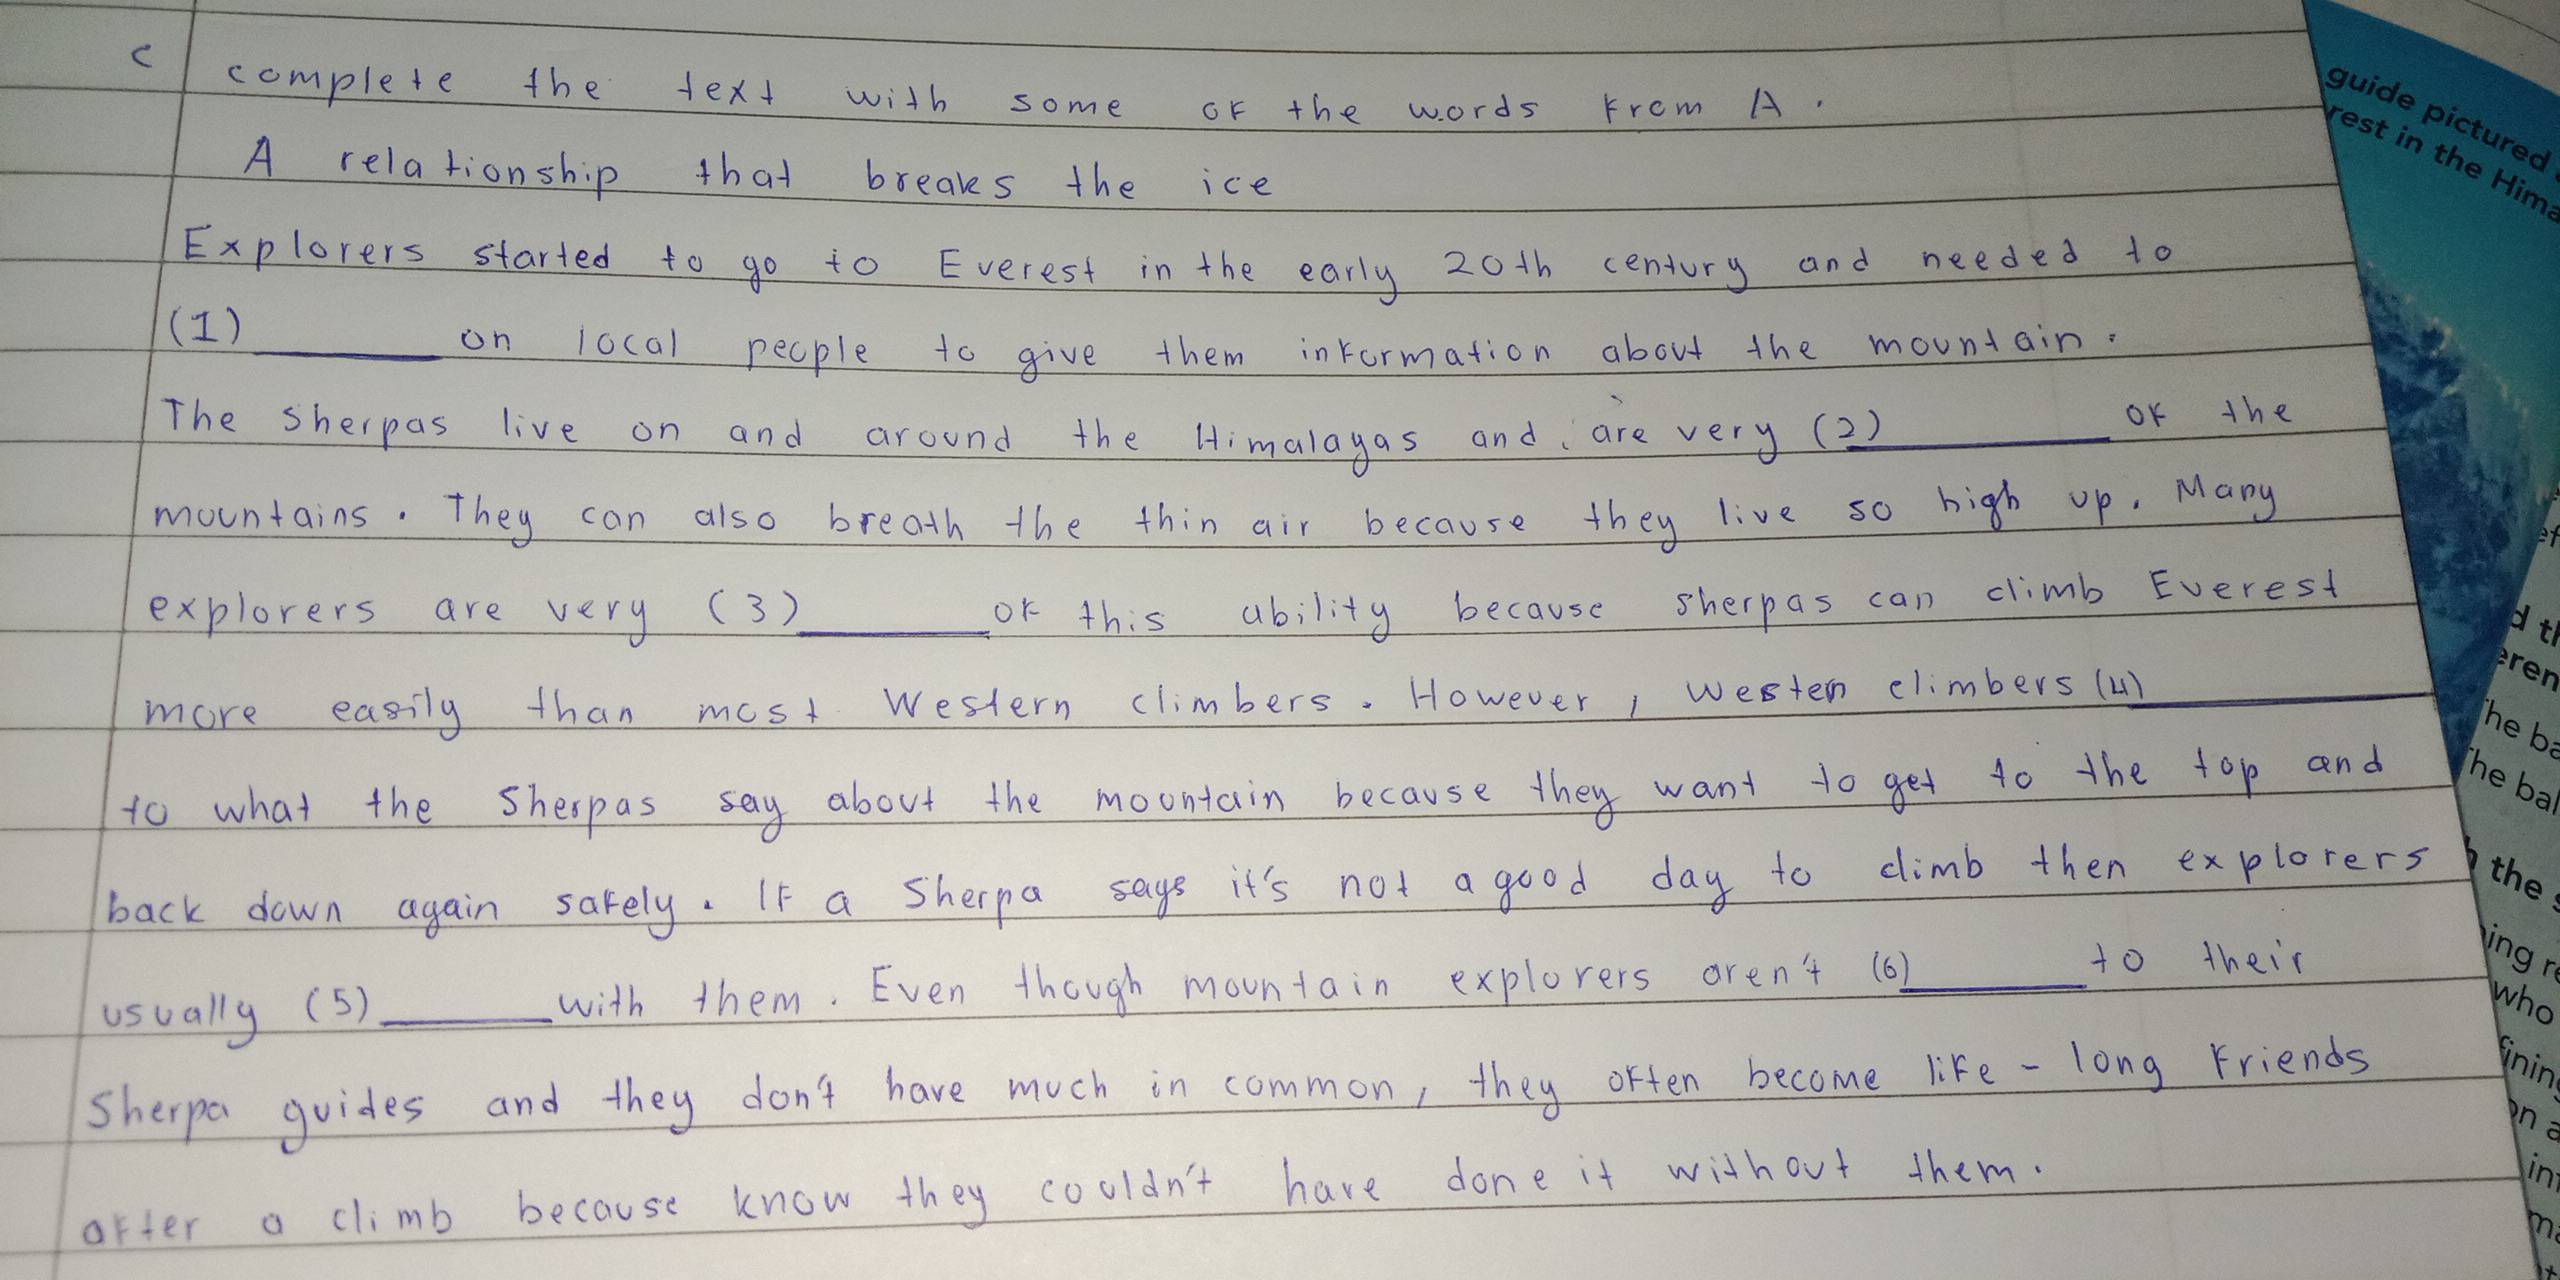 c complete the text with some of the words from A.
A relationship that breaks the ice
Explorers started to go to Everest in the early 20th century and needed to
(1)______ on local people to give them information about the mountain.
The Sherpas live on and around the Himalayas and are very (2)________ of the
mountains. They can also breath the thin air because they live so high up. Many
explorers are very (3)______ of this ability because sherpas can climb Everest
more easily than most Western climbers. However, Westen climbers (4)________
to what the Sherpas say about the mountain because they want to get to the top and
back down again safely. If a Sherpa says it's not a good day to climb then explorers
usually (5)______ with them. Even though mountain explorers aren't (6)______ to their
Sherpa guides and they don't have much in common, they often become life-long friends
after a climb because know they couldn't have done it without them.
guide pictured
rest in the Hima
the